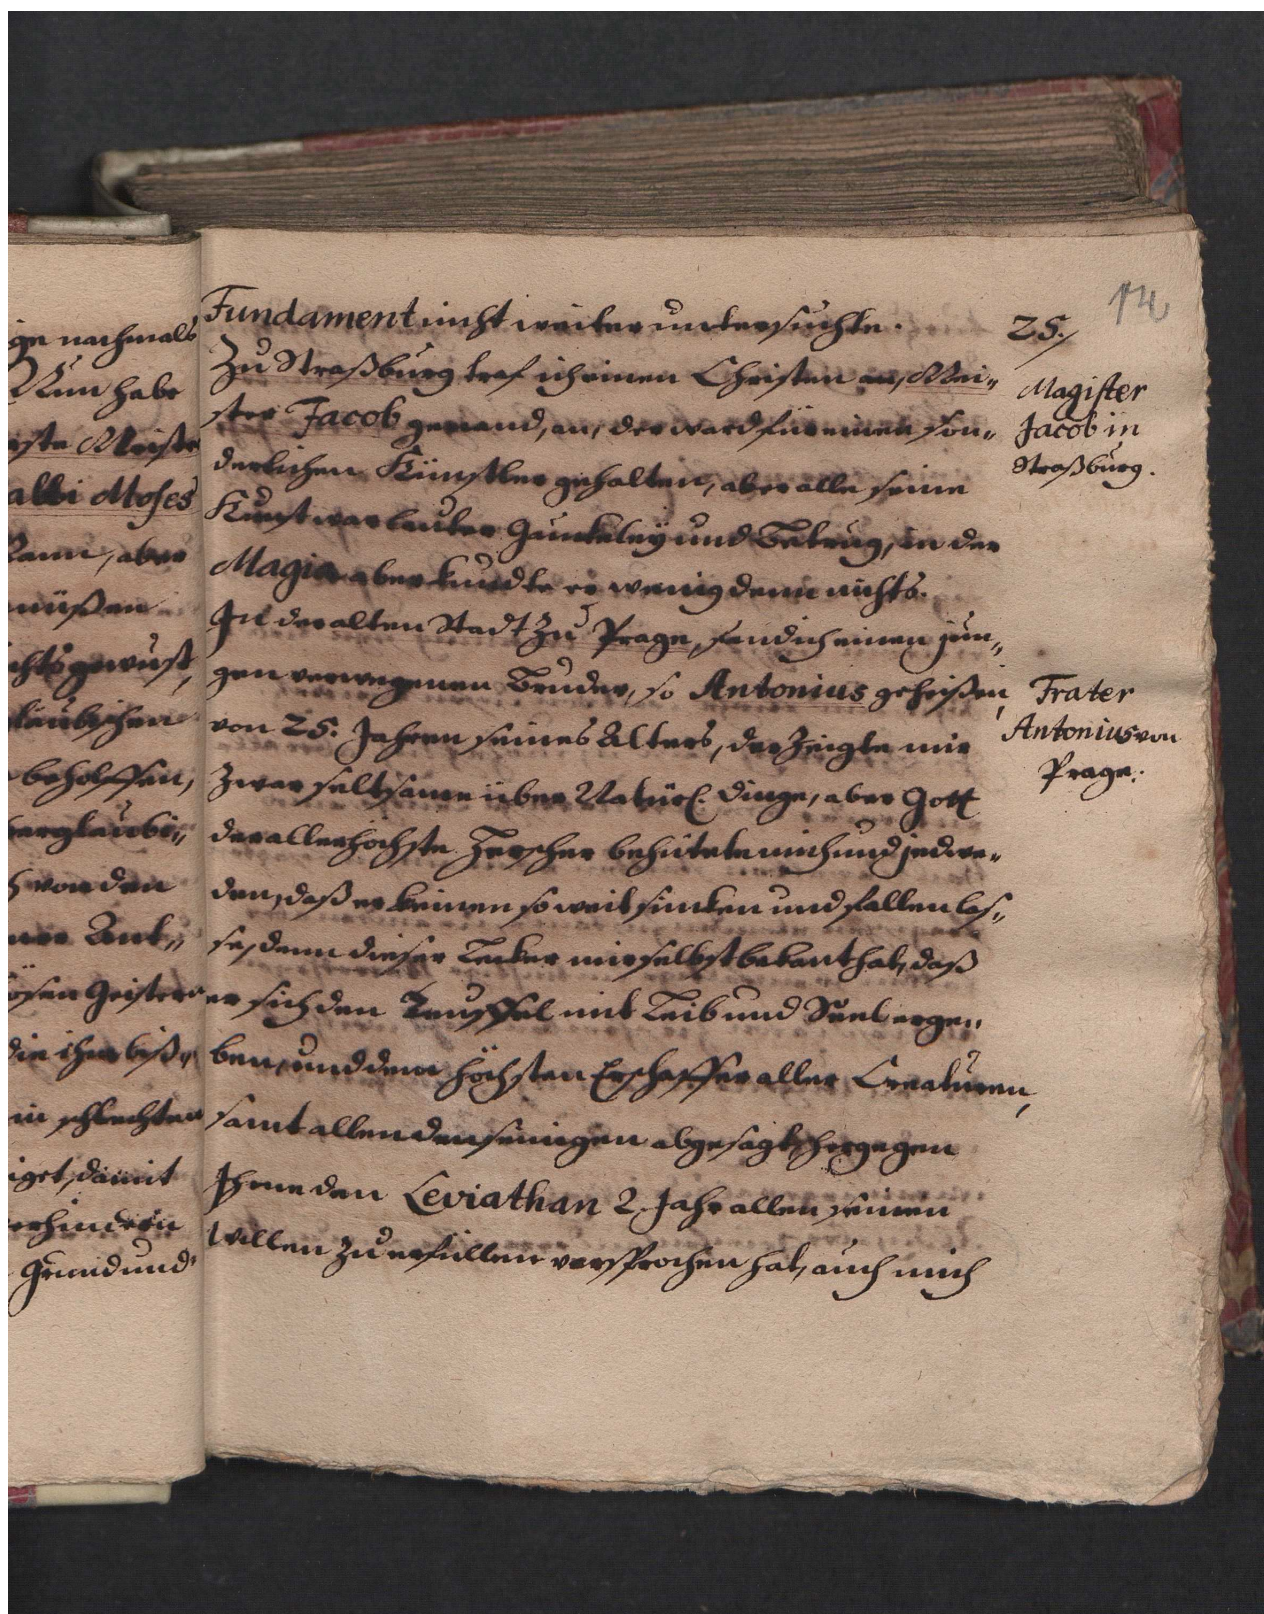 ge nachmals
Nun habe
rste Meister
abbi Moses
Mann, aber
müßen
chts gewust,
gläubischen
beholffen,
berglaubi„
von den
ner Ant„
ösen Geister
die ihm biß„
in schlechter
iget, damit
verhindern
Grund und
14
25.
Fundament nicht weiter untersuchte.
Zu Straßburg traf ich einen Christen an, Mei„
ster Jacob genand, an, der ward für einen son„
derlichen Künstler gehalten, aber alle seine
Kunst war lauter Gauckeley und Betrug, in der
Magia aber kundte er wenig denn nichts.
In der alten Stadt zu Prage, fand ich einen jun„
gen verwegenen Bruder, so Antonius geheißen,
von 25. Jahren seines Alters, der zeigte mir
zwar seltsame über Natürl. dinge, aber Gott
der allerhöchste Herscher behütete mich und jedwe„
den, daß er keinen so weit sincken und fallen las„
se, denn dieser Lecker mir selbst bekant hat, daß
er sich den Teuffel mit Leib und Seel erge„
ben, und dem höchsten Erschaffer aller Creaturen,
samt allen denseinigen abgesagt, hergegen
Ihme den Leviathan 2. Jahr allen seinen
Willen zu erfüllen versprochen hat, auch mich
Magister
Jacob in
Straßburg.
Frater
Antonius von
Prage.